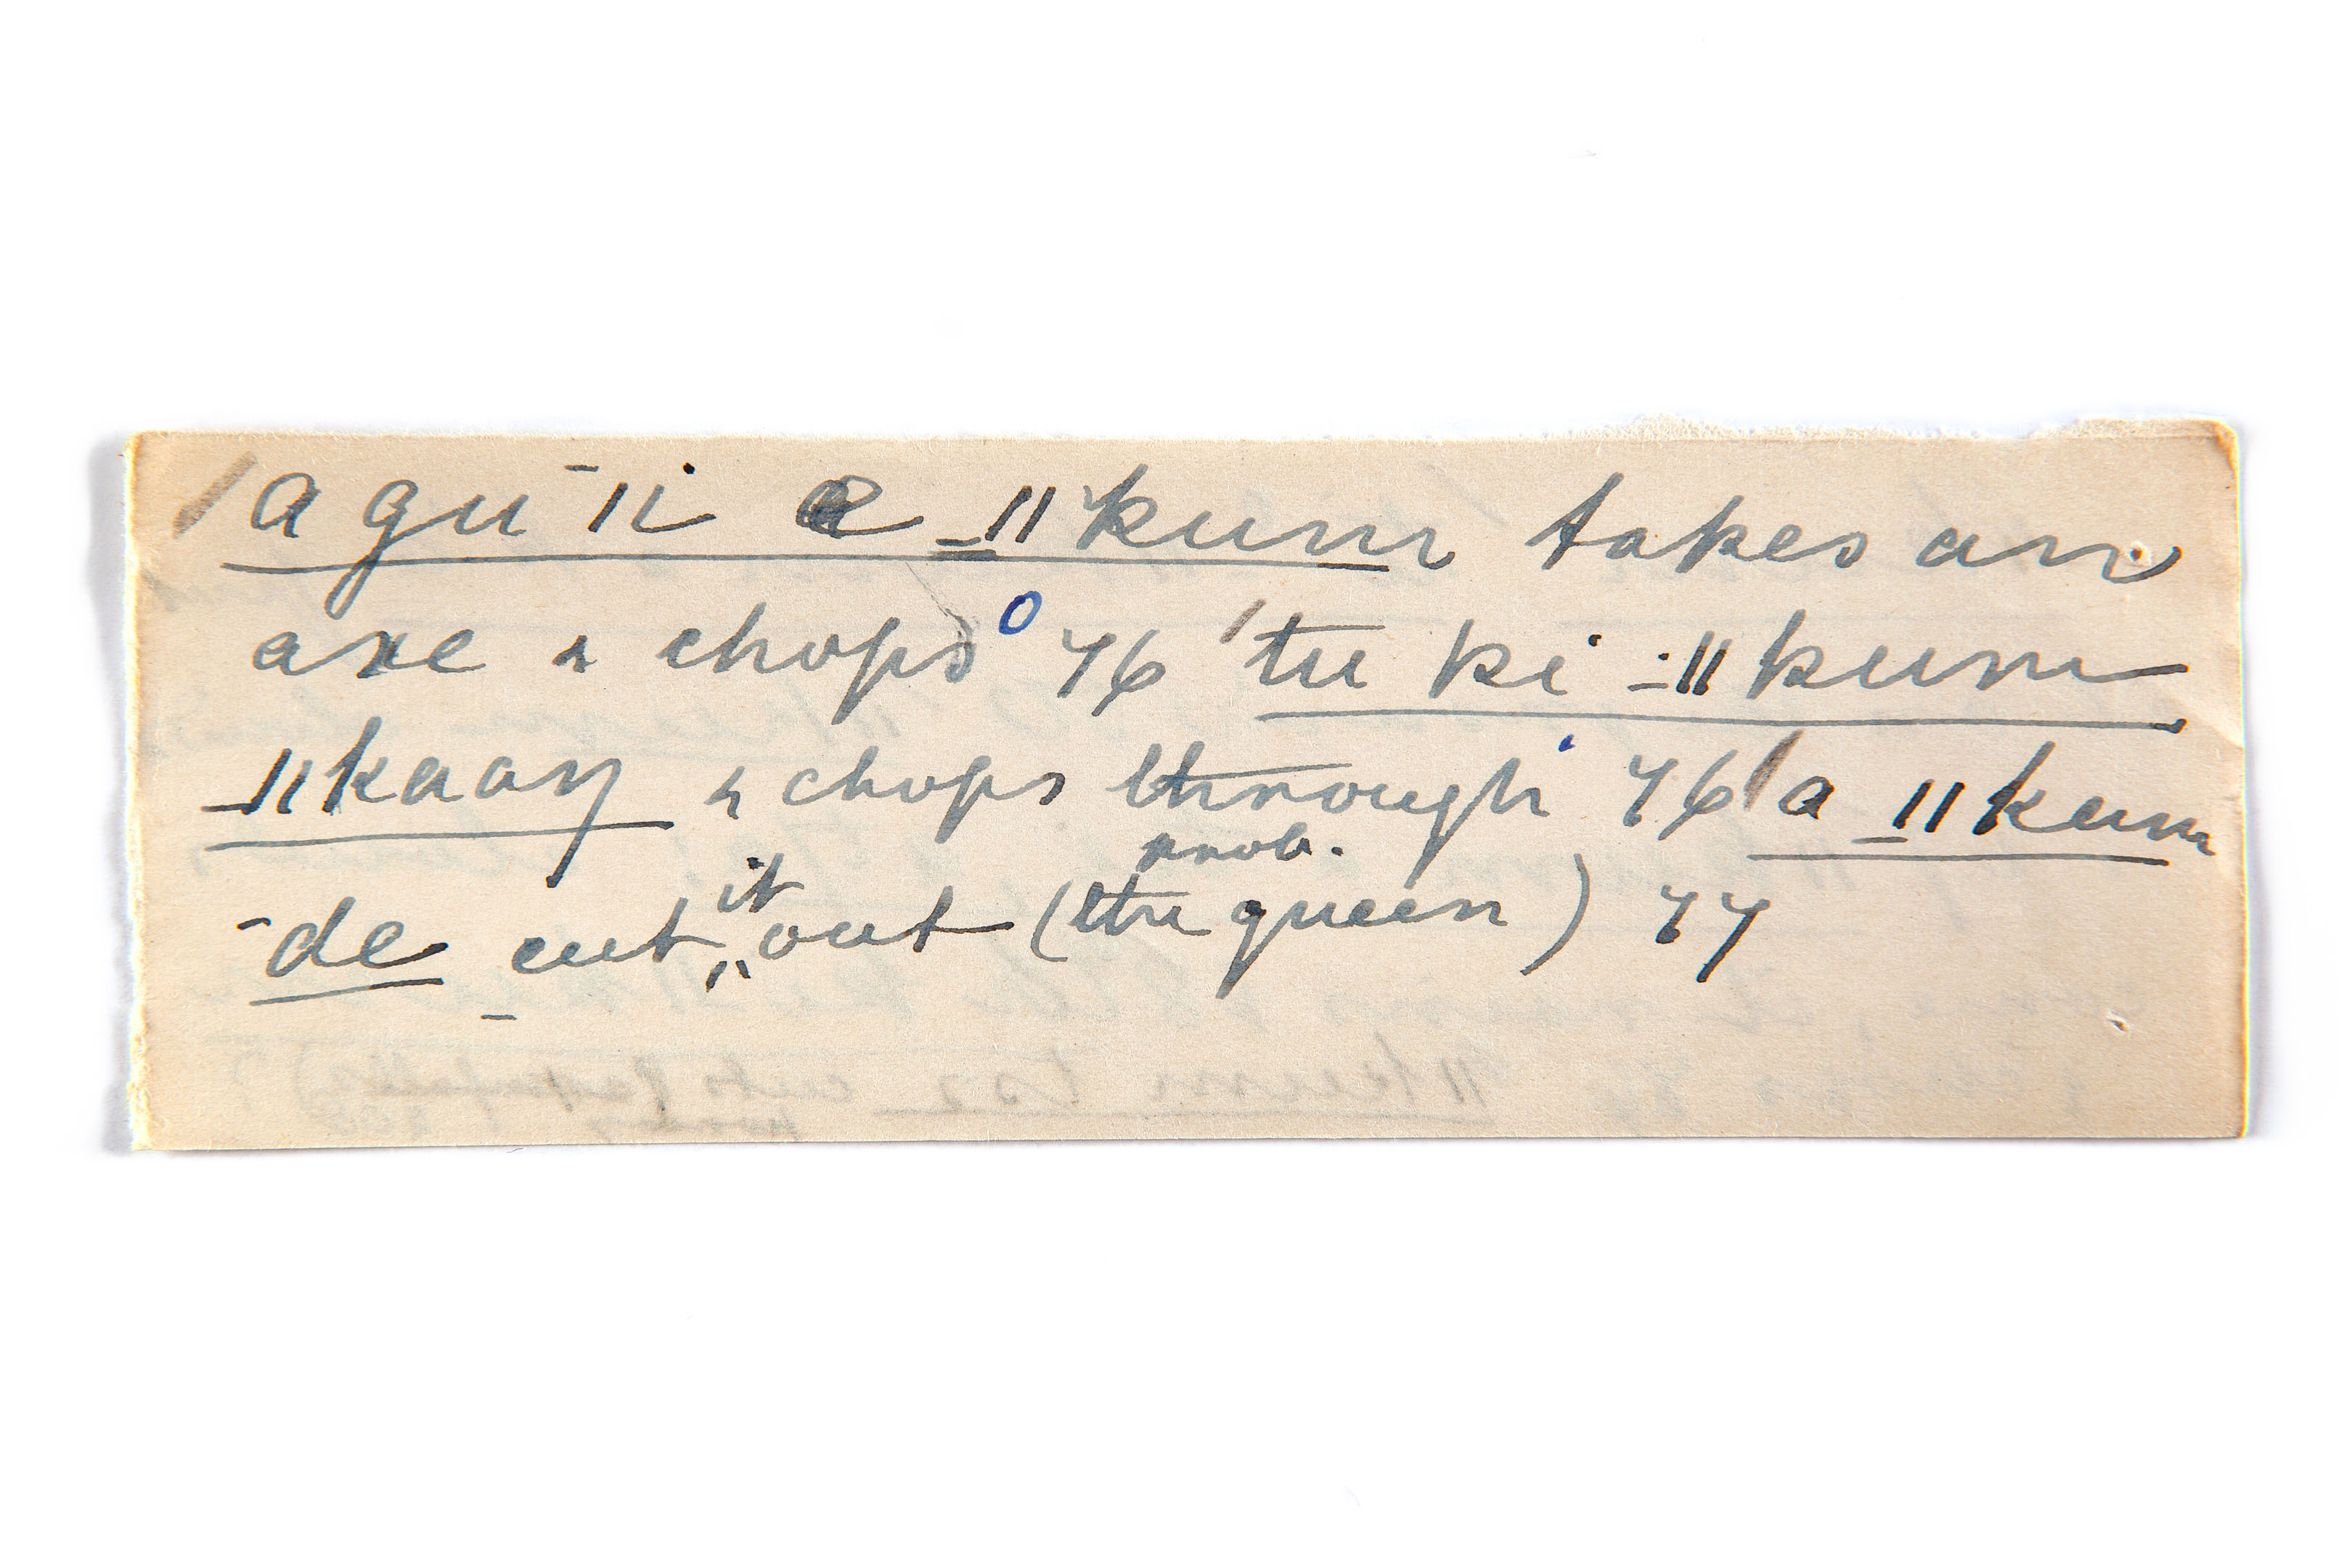 /a gu ¯ǁi e _ǁkum takes an
axe & chops 76 /tu ki -̇ǁkum
_ǁkaaŋ & chops through 76 /a _ǁkum
¯de cut it out (the prob. queen) 77